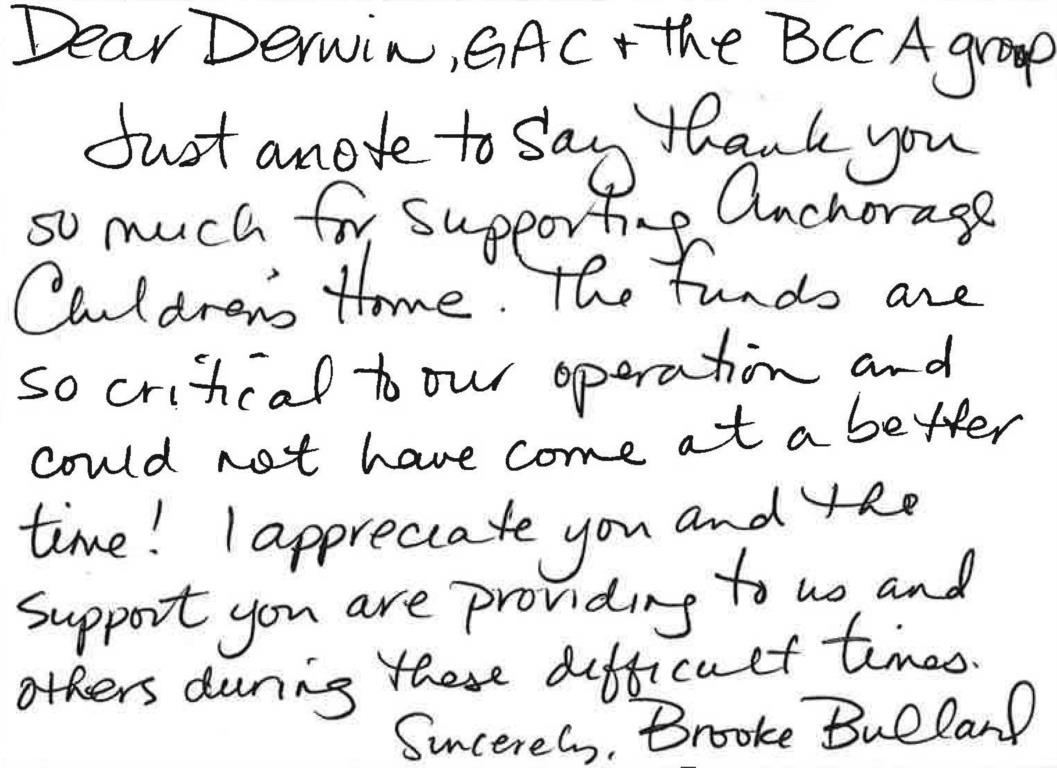 Dear Derwin, GAC + the BCC A group
Just a note to say thank you
so much for supporting Anchorage
Children's Home. The funds are
so critical to our operation and
could not have come at a better
time! I appreciate you and the
support you are providing to us and
others during these difficult times.
Sincerely, Brooke Bullard